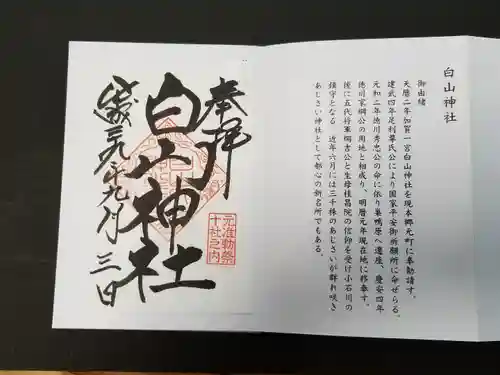 白山神社
御由緒
天暦二年加賀一宮白山神社を現本郷元町に奉勧請す。
建武四年足利尊氏公により国家平安御祈願所に命ぜらる。
元和二年徳川秀忠公の命に依り巣鴨原へ遷座、慶安四年
徳川家綱公の用地と相成り、明暦元年現在地に移奉す。
後に五代将軍綱吉公と生母桂昌院の信仰を受け小石川の
鎮守となる 近年六月には三千株のあじさいが群れ咲き
あじさい神社として都心の新名所でもある。
奉拝
白山神社
元准勅祭
十社之内
九月
三日